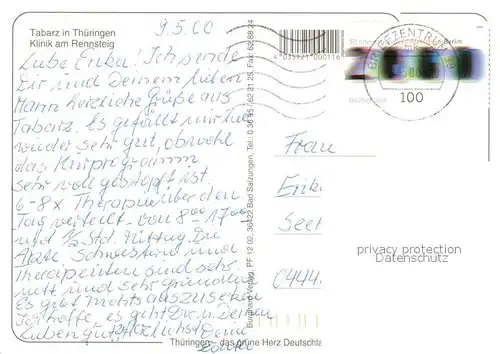 Tabarz in Thüringen
Klinik am Rennsteig
9.5.00
Liebe Erika! Ich sende
Dir und Deinem lieben
Mann herzliche Grüße aus
Tabarz. Es gefällt mir hier
wieder sehr gut, obwohl
das Kurprogramm
sehr voll gestopft ist.
6-8x Therapie über den
Tag verteilt von 8⁰⁰-17⁰⁰
mit ½ Std. Mittag. Die
Ärzte Schwestern und
Therapeuten sind sehr
nett und sehr gründlich
Es gibt nichts auszusetzen
Ich hoffe, es geht Dir u. Deinen
Lieben gut. Herzlichst Deine
Burghard Verlag, PF 12 02, 36422 Bad Salzungen, Tel.: 0 36 95 / 62 21 25, Fax: 62 88 24
4 035121 000116
BRIEFZENTRUM
100
Berlin
Deutschland
Frau
Erik
See
0444
privacy protection
Datenschutz
Thüringen - das grüne Herz Deutschla